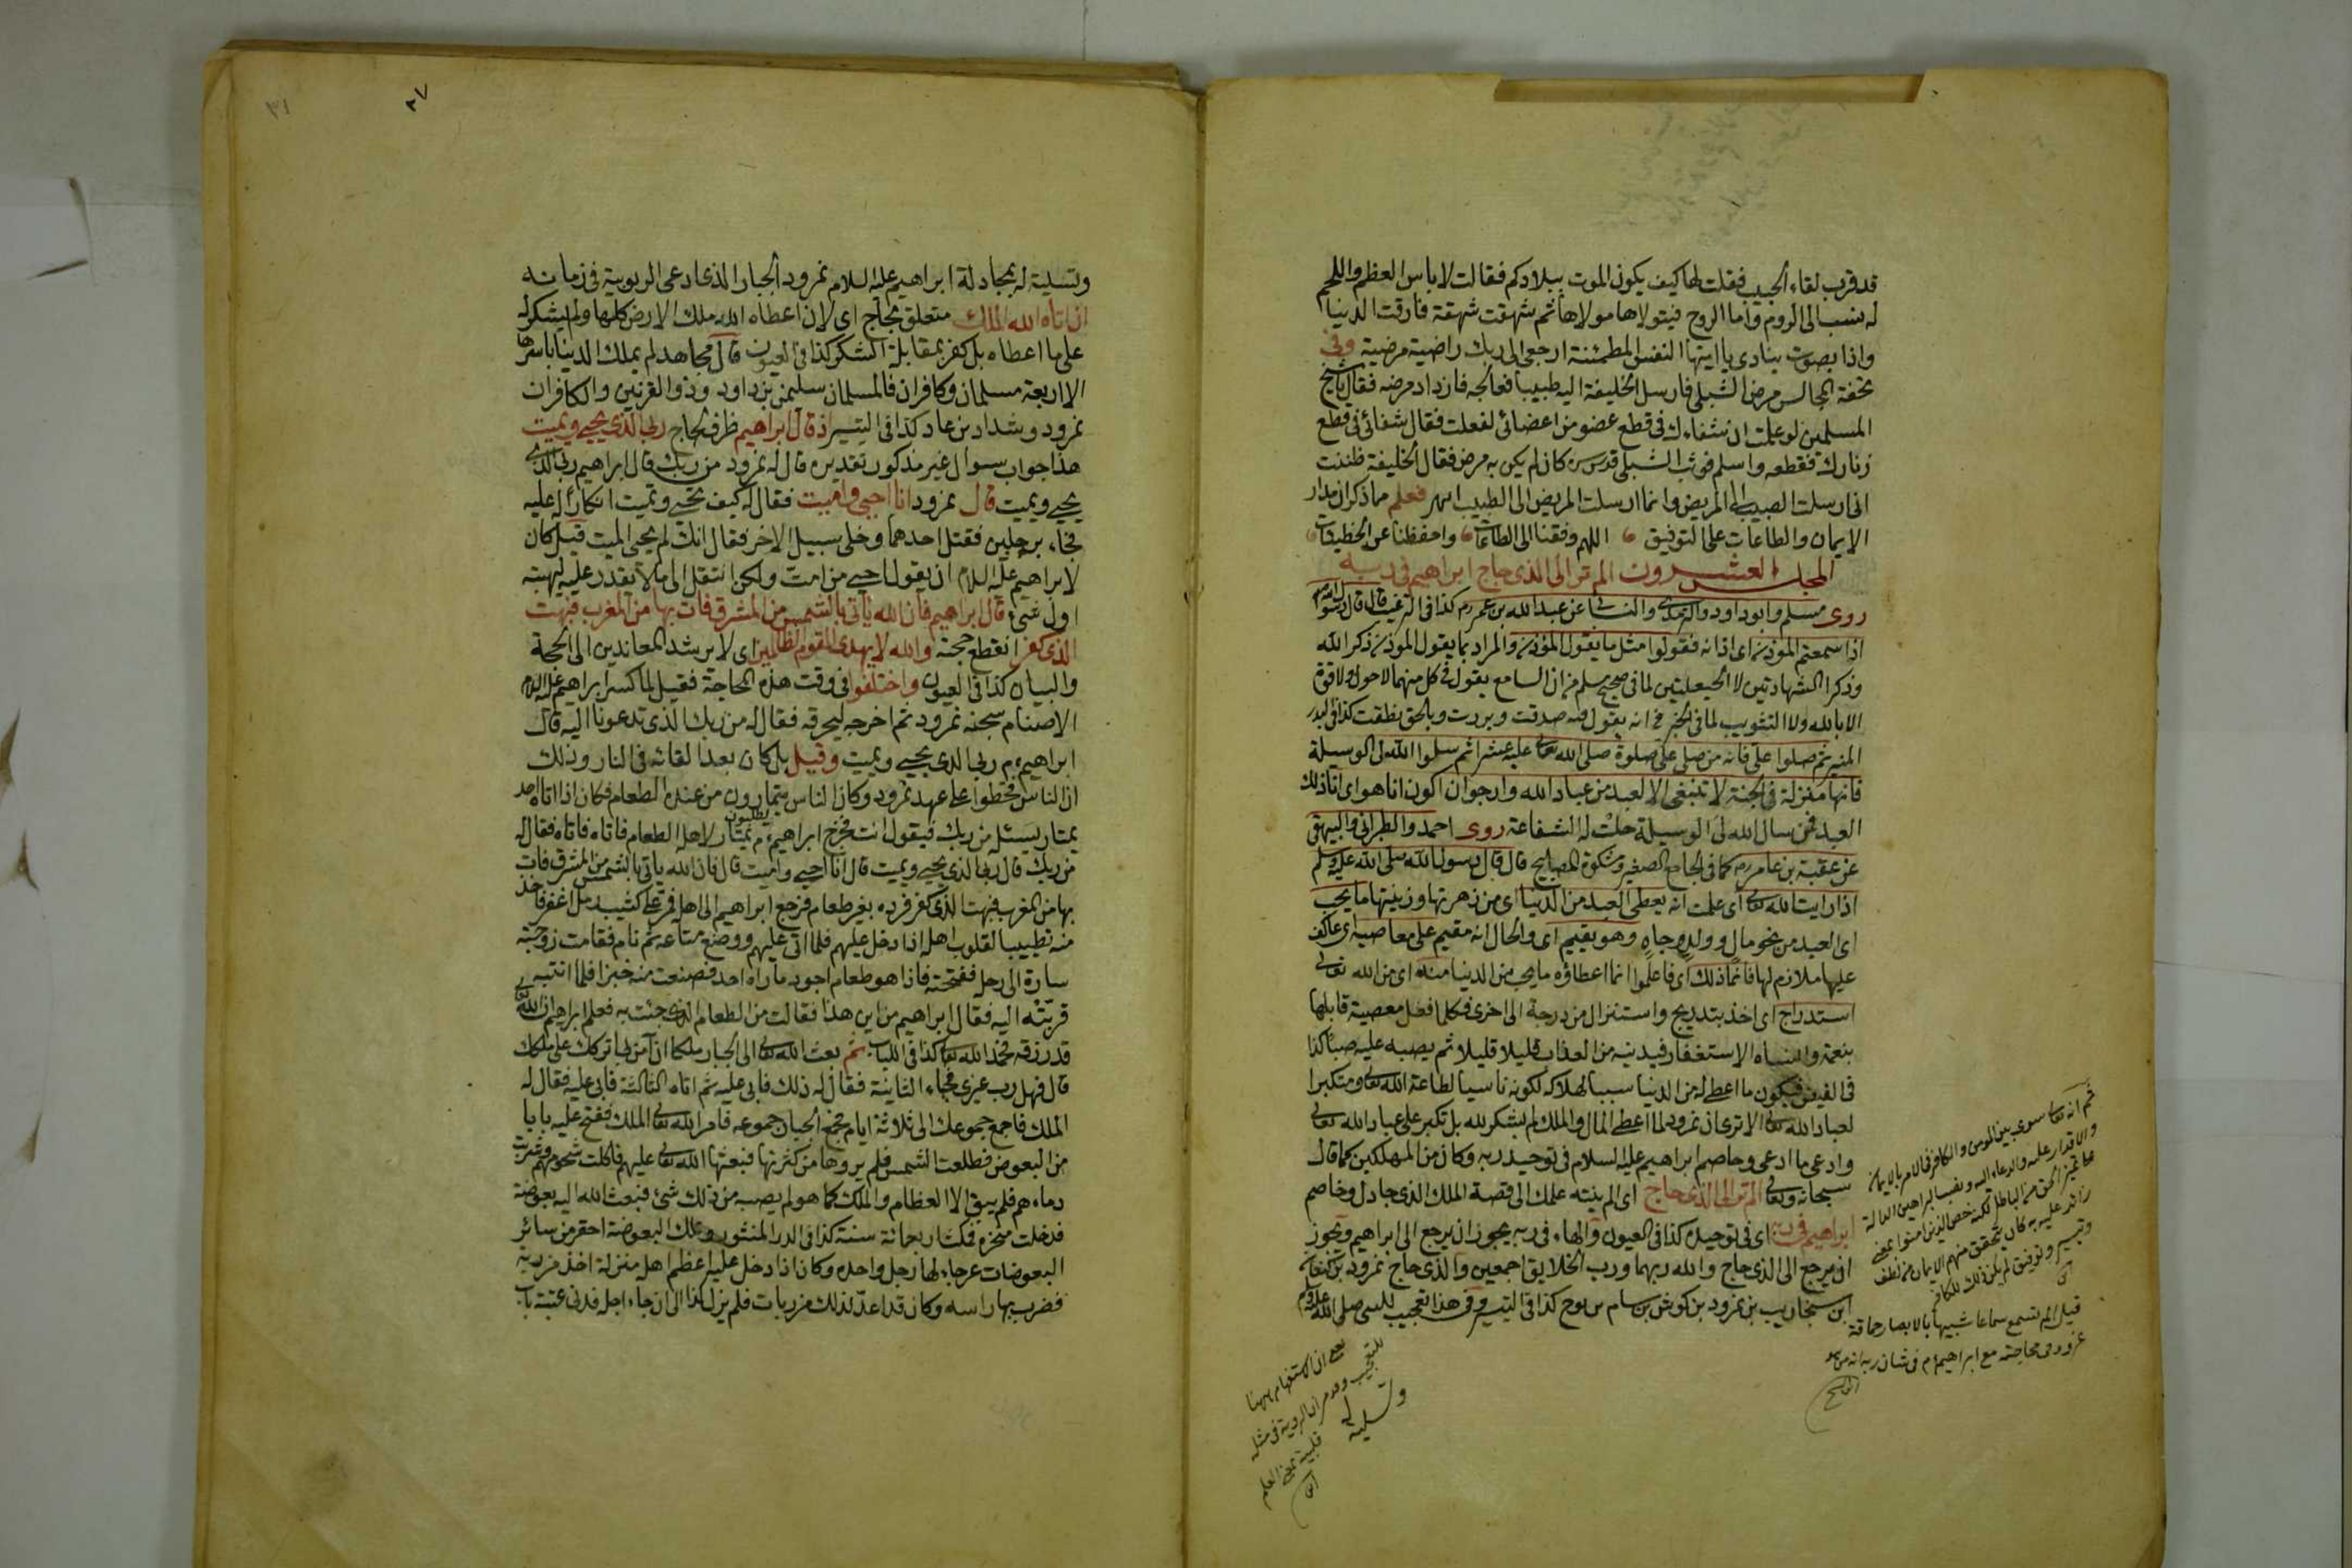 قد قرب لقاء الحبيب فقلت لها كيف يكون الموت ببلادكم فقالت لا باس العظم واللحم
له نسب الى الروم واما الروح فيتولاها مولاها ثم شهقت شهقة فارقت الدنيا
واذا بصوت ينادى يا ايتها النفس المطمئنة ارجعى الى ربك راضية مرضية وفى
تحفة المجالس مرض الشبلى فارسل الخليفة اليه طبيبا فعالجه فازداد مرضه فقال يا شيخ
المسلمين لو علمت ان شفاءك فى قطع عضو من اعضائى لفعلت فقال شفائى فى قطع
زنارك فقطعه واسلم فوثب الشبلى قدس سره كان لم يكن به مرض فقال الخليفة ظننت
انى ارسلت الطبيب الى المريض وانما ارسلت المريض الى الطبيب انتهى فعلم مما ذكر ان مدار
الايمان والطاعات على التوفيق اللهم وفقنا الى الطاعات واحفظنا عن الخطيئات
المجلس العشرون الم تر الى الذى حاج ابراهيم فى ربه
روى مسلم وابو داود والترمذى والنسائى عن عبد الله بن عمر رم كذا فى الترغيب قال قال رسول الله
اذا سمعتم المؤذن اى اذانه فقولوا مثل ما يقول المؤذن والمراد بما يقول المؤذن ذكر الله
وذكر الشهادتين لا الحيعلتين لما فى صحيح مسلم من ان السامع يقول فى كل منهما لا حول ولا قوة
الا بالله ولا التثويب لما فى الخبر من انه يقول فيه صدقت وبررت وبالحق نطقت كذا فى البدر
المنير ثم صلوا على فانه من صلى على صلوة صلى الله تعالى عليه عشرا ثم سلوا الله لى الوسيلة
فانها منزلة فى الجنة لا تنبغى الا لعبد من عباد الله وارجو ان اكون انا هو اى انا ذلك
العبد فمن سال الله لى الوسيلة حلت له الشفاعة روى احمد والطبرانى والبيهقى
عن عقبة بن عامر رم كما فى الجامع الصغير ومشكوة المصابيح قال قال رسول الله صلى الله عليه وسلم
اذا رايت الله تعالى اى علمت انه يعطى العبد من الدنيا اى من زهرتها وزينتها ما يحب
اى العبد من نحو مال وولد وجاه وهو يقيم اى والحال انه مقيم على معاصيه اى عاكف
عليها ملازم لها فانما ذلك اى فاعلموا انما اعطاؤه ما يحب من الدنيا منه اى من الله تعالى
استدراج اى اخذ بتدريج واستنزال من درجة الى اخرى فكلما فعل معصية قابلها
بنعمة وانساه الاستغفار فيدنيه من العذاب قليلا قليلا ثم يصبه عليه صبا كذا
فى الفيض فيكون ما اعطى له من الدنيا سببا لهلاكه لكونه ناسيا لطاعة الله تعالى ومتكبرا
لعباد الله تعالى الا ترى ان نمرود لما اعطى المال والملك لم يشكر لله بل تكبر على عباد الله تعالى
وادعى ما ادعى وخاصم ابراهيم عليه السلام فى توحيد ربه وكان من المهلكين كما قال
سبحانه وتعالى الم تر الى الذى حاج اى الم ينته علمك الى قصة الملك الذى جادل وخاصم
ابراهيم فى ربه اى فى توحيده كذا فى العيون والهاء فى ربه يجوز ان يرجع الى ابراهيم ويجوز
ان يرجع الى الذى حاج والله ربهما ورب الخلايق اجمعين والذى حاج نمرود بن كنعان
ابن سنجاريب بن نمرود بن كوش بن سام بن نوح كذا فى التيسير وفى هذا تعجيب للنبى صلى الله عليه وسلم
وتسلية
ثم انه تعالى سوى بين المؤمن والكافر فى الامر بالايمان
والاقدار عليه والدعاء اليه ونصب البراهين الدالة
قيل الم تسمع سماعا شبيها بالابصار حماقة
نمرود فى محاجته مع ابراهيم م فى شان ربه
يعنى ان الاستفهام ههنا
للتعجيب
قلبية بمعنى العلم
٢٧
٣١
وتسلية له بمجادلة ابراهيم عليه السلام نمرود الجبار الذى ادعى الربوبية فى زمانه
ان اتاه الله الملك متعلق بحاج اى لان اعطاه الله ملك الارض كلها ولم يشكر له
على ما اعطاه بل كفر بمقابلة الشكر كذا فى العيون قال مجاهد لم يملك الدنيا باسرها
الا اربعة مسلمان وكافران فالمسلمان سليمن بن داود وذو القرنين والكافران
نمرود وشداد بن عاد كذا فى التيسير اذ قال ابراهيم ظرف لحاج ربى الذى يحيى ويميت
هذا جواب سوال غير مذكور تقديره قال له نمرود من ربك قال ابراهيم ربى الذى
يحيى ويميت قال نمرود انا احيى واميت فقال له كيف تحيى وتميت انكارا له عليه
فجاء برجلين فقتل احدهما وخلى سبيل الاخر فقال انك لم تحيى الميت قيل كان
لابراهيم عليه السلام ان يقول احيى من امت ولكن انتقل الى ما لا يقدر عليه ليبهته
اول شئ قال ابراهيم فان الله ياتى بالشمس من المشرق فات بها من المغرب فبهت
الذى كفر انقطع حجته والله لا يهدى القوم الظالمين اى لا يرشد المعاندين الى الحجة
والبيان كذا فى العيون واختلفوا فى وقت هذه المحاجة فقيل لما كسر ابراهيم عليه السلام
الاصنام سجنه نمرود ثم اخرجه ليحرقه فقال له من ربك الذى تدعونا اليه قال
ابراهيم م ربى الذى يحيى ويميت وقيل بل كان بعد القائه فى النار وذلك
ان الناس قحطوا على عهد نمرود وكان الناس يمتارون من عنده الطعام فكان اذا اتاه احد
يطلبون
يمتار يسئله من ربك فيقول انت فخرج ابراهيم م يمتار لاهله الطعام فاتاه فاتاه فقال له
من ربك قال ربى الذى يحيى ويميت قال انا احيى واميت قال فان الله ياتى بالشمس من المشرق فات
بها من المغرب فبهت الذى كفر فرده بغير طعام فرجع ابراهيم الى اهله فمر على كثيب رمل اعفر فاخذ
منه تطييبا لقلوب اهله اذا دخل عليهم فلما اتى عليهم ووضع متاعه ثم نام فقامت زوجته
سارة الى رحله ففتحته فاذا هو طعام اجود ما راه احد فصنعت منه خبزا فلما انتبه
قربته اليه فقال ابراهيم من اين هذا فقالت من الطعام الذى جئت به فعلم ابراهيم ان الله تعالى
قد رزقه فحمد الله تعالى كذا فى اللباب ثم بعث الله تعالى الى الجبار ملكا ان آمن بى اتركك على ملكك
قال فهل رب غيرى فجاء الثانية فقال له ذلك فابى عليه ثم اتاه الثالثة فابى عليه فقال له
الملك فاجمع جموعك الى ثلاثة ايام فجمع الجبار جموعه فامر الله تعالى الملك ففتح عليه بابا
من البعوض فطلعت الشمس فلم يروها من كثرتها فبعثها الله تعالى عليهم فاكلت شحومهم وشربت
دماءهم فلم يبق الا العظام والملك كما هو لم يصبه من ذلك شئ فبعث الله اليه بعوضة
فدخلت منخره فمكث اربعمائة سنة كذا فى الدر المنثور وتلك البعوضة احقر من سائر
البعوضات عرجاء لها رجل واحدة وكان اذا دخل عليه اعظم اهله منزلة اخذ مرزبة
فضرب بها راسه وكان قد اعد لذلك مرزبات فلم يزل كذا الى ان جاء اجله فدنى عتبة باب